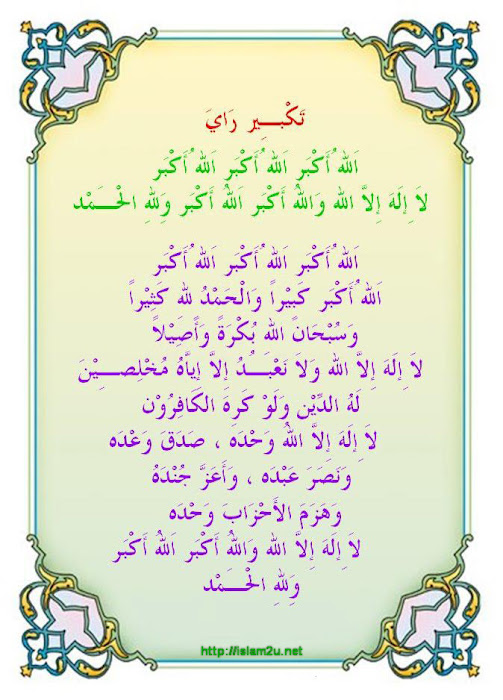 تَكْبِـــير رَايَ
اَلله ُأَكْبَر اَلله ُأَكْبَر اَلله ُأَكْبَر
لاَ إِلَهَ إِلاَّ الله وَاللهُ أَكْبَر اَللهُ أَكْبَر وَلِلهِ الْحَـــمْد
اَلله ُأَكْبَر اَلله ُأَكْبَر اَلله ُأَكْبَر
اَلله ُأَكْبَر كَبِيْراً وَالْحَمْدُ لله كَثِيْراً
وَسُبْحَانَ الله بُكْرَةً وَأَصَيْلاً
لاَ إِلَهَ إِلاَّ الله وَلاَ نَعْبُـــدُ إِلاَّ إِيَّاهُ مُخْلِصِـــيْنَ
لَهُ الدِّيْن وَلَوْ كَرِهَ الكَافِرُوْن
لاَ إِلَهَ إِلاَّ اللهُ وَحْدَه ، صَدَقَ وَعْدَه
وَنَصَرَ عَبْدَه ، وَأَعَزَّ جُنْدَهُ
وَهَزَمَ الأَحْزَابَ وَحْدَه
لاَ إِلَهَ إِلاَّ الله وَاللهُ أَكْبَر اَللهُ أَكْبَر
وَلِلهِ الْحَـــمْد
http://islam2u.net